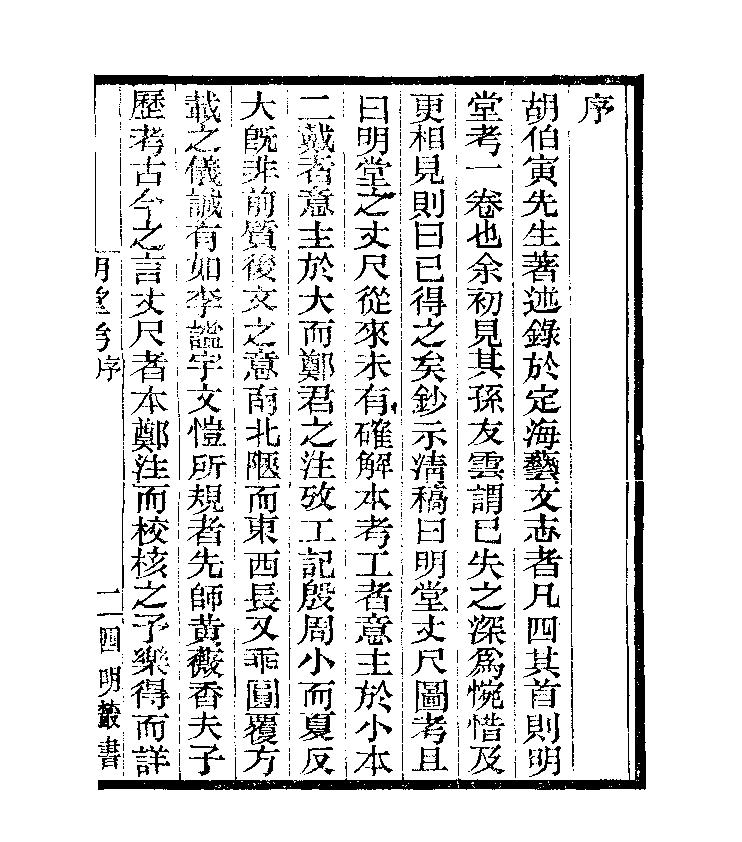 序
胡伯寅先生著述錄於定海藝文志者凡四其首則明
堂考一卷也余初見其孫友雲謂已失之深爲惋惜及
更相見則曰已得之矣鈔示清稿曰明堂丈尺圖考且
曰明堂之丈尺從來未有確解本考工者意主於小本
二戴者意主於大而鄭君之注攷工記殷周小而夏反
大旣非前質後文之意南北陿而東西長又乖圓覆方
載之儀誠有如李謐宇文愷所規者先師黃薇香夫子
歷考古今之言丈尺者本鄭注而校核之予樂得而詳
明堂考序
二 四明叢書